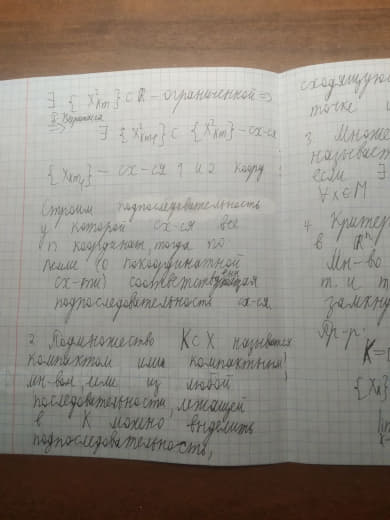 ∃ {x²_{k_m}} ⊂ ℝ - ограниченной ⇒
∃ {x²_{k_{m_p}}} ⊂ {x²_{k_m}} - сх-ся
- сх-ся 1 и 2 коорд
Строим подпоследовательность
у которой сх-ся все
n координаты, тогда по
лемме (о покоординатной
сх-ти) соответствующая
подпоследовательность сх-ся.
2. Подмножество K ⊂ X называется
компактом или компактным
мн-вом, если из любой
последовательности, лежащей
в K можно выделить
подпоследовательность,
сходящуюся
точке
3. Множе
называет
если ∃
∀x∈M
4. Критер
в ℝⁿ
Мн-во
т. и т
замкну
Пр-р:
K =
{x_n}